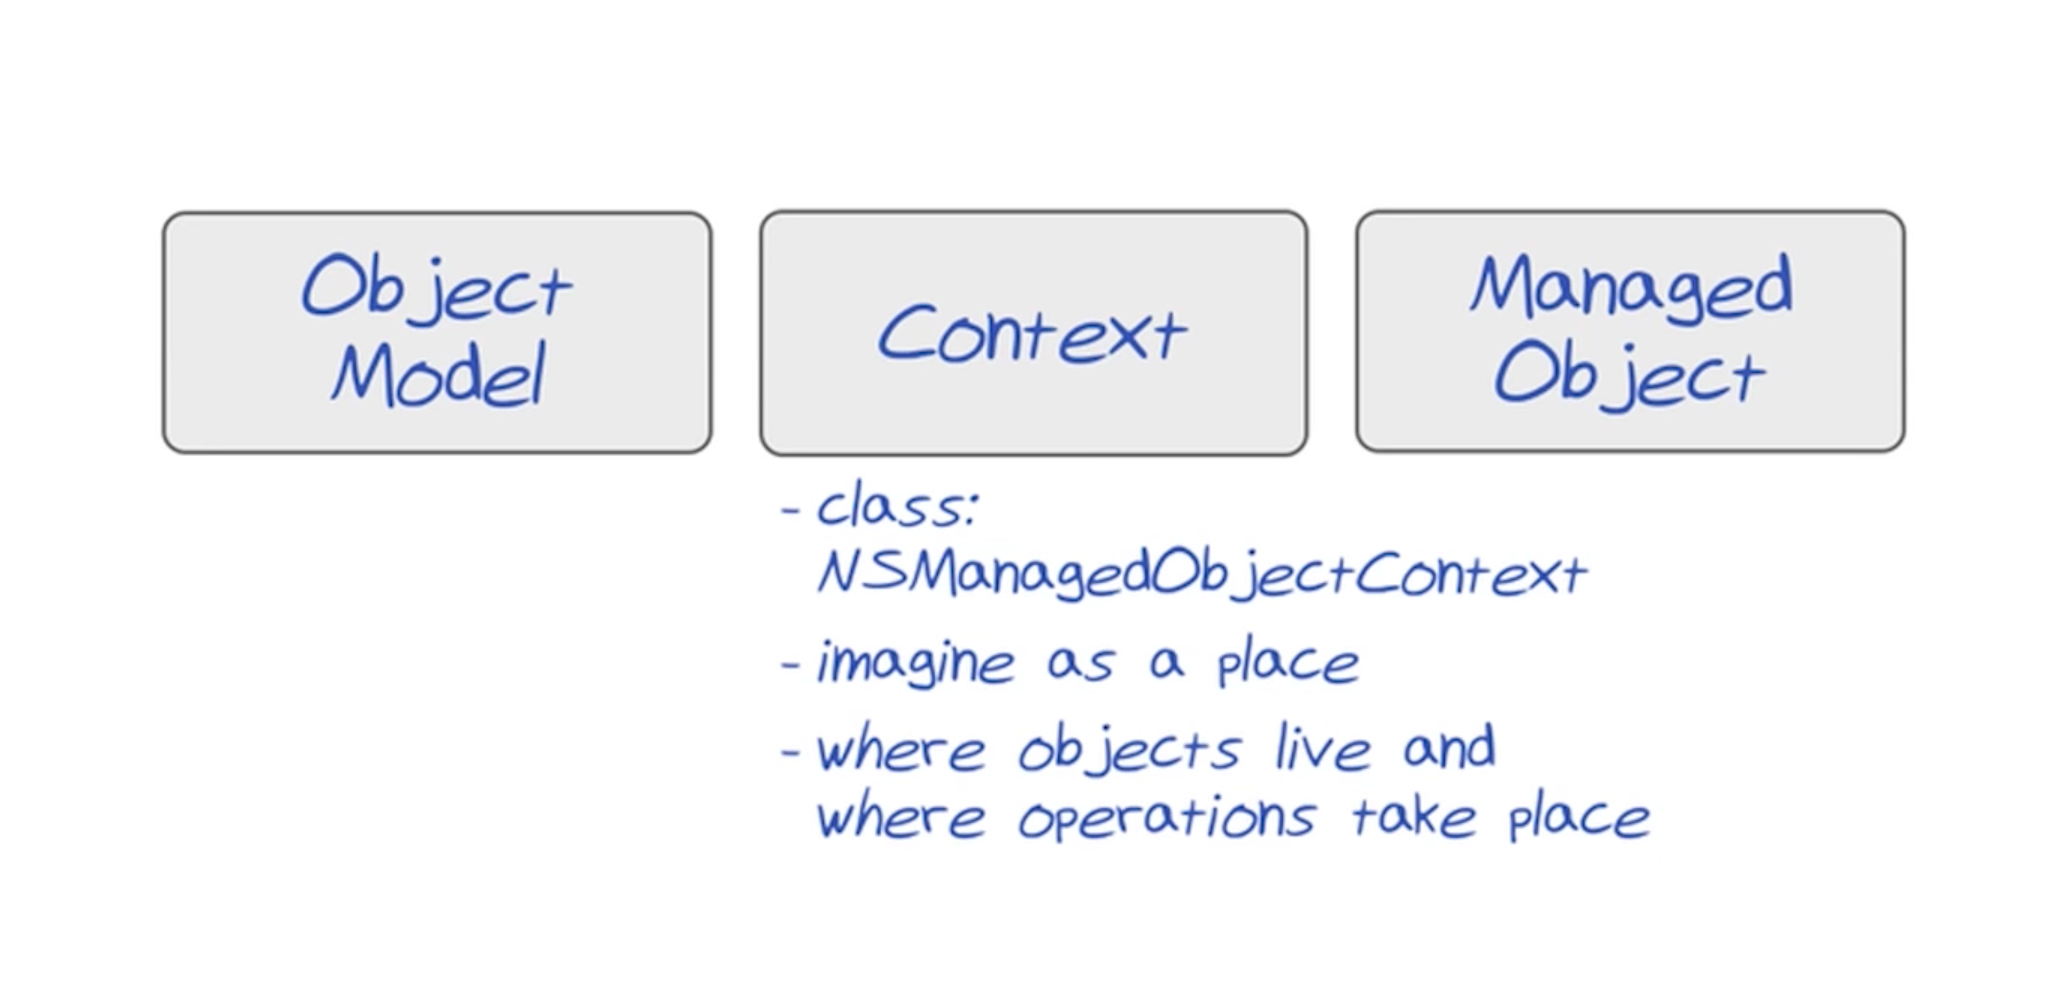 Object
Model
Context
Managed
Object
- class:
NSManagedObjectContext
- imagine as a place
- where objects live and
where operations take place